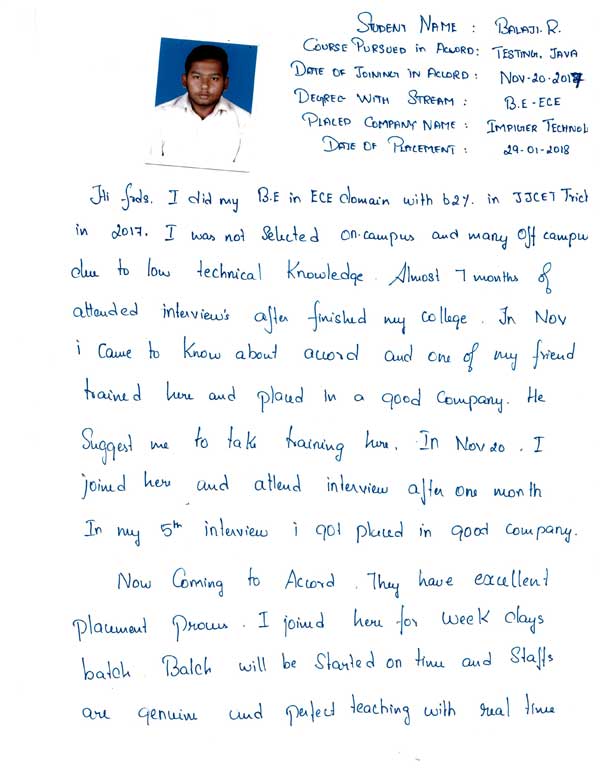 STUDENT NAME : BALAJI. R.
COURSE PURSUED in ACCORD: TESTING, JAVA
DATE OF JOINING IN ACCORD : NOV-20-2017
DEGREE WITH STREAM : B.E-ECE
PLACED COMPANY NAME : IMPIGER TECHNOL
DATE OF PLACEMENT : 29-01-2018
Hi frds. I did my B.E in ECE domain with 62%. in JJCET Trich
in 2017. I was not Selected on-campus and many Off campu
due to low technical Knowledge. Almost 7 months of
attended interview's after finished my college. In Nov
i Came to Know about accord and one of my friend
trained here and placed In a good Company. He
Suggest me to take training here. In Nov 20. I
joined here and attend interview after one month
In my 5th interview i got placed in good company.
Now Coming to Accord. They have excellent
Placement Process. I joined here for week days
batch. Batch will be Started on time and Staffs
are genuine and perfect teaching with real time